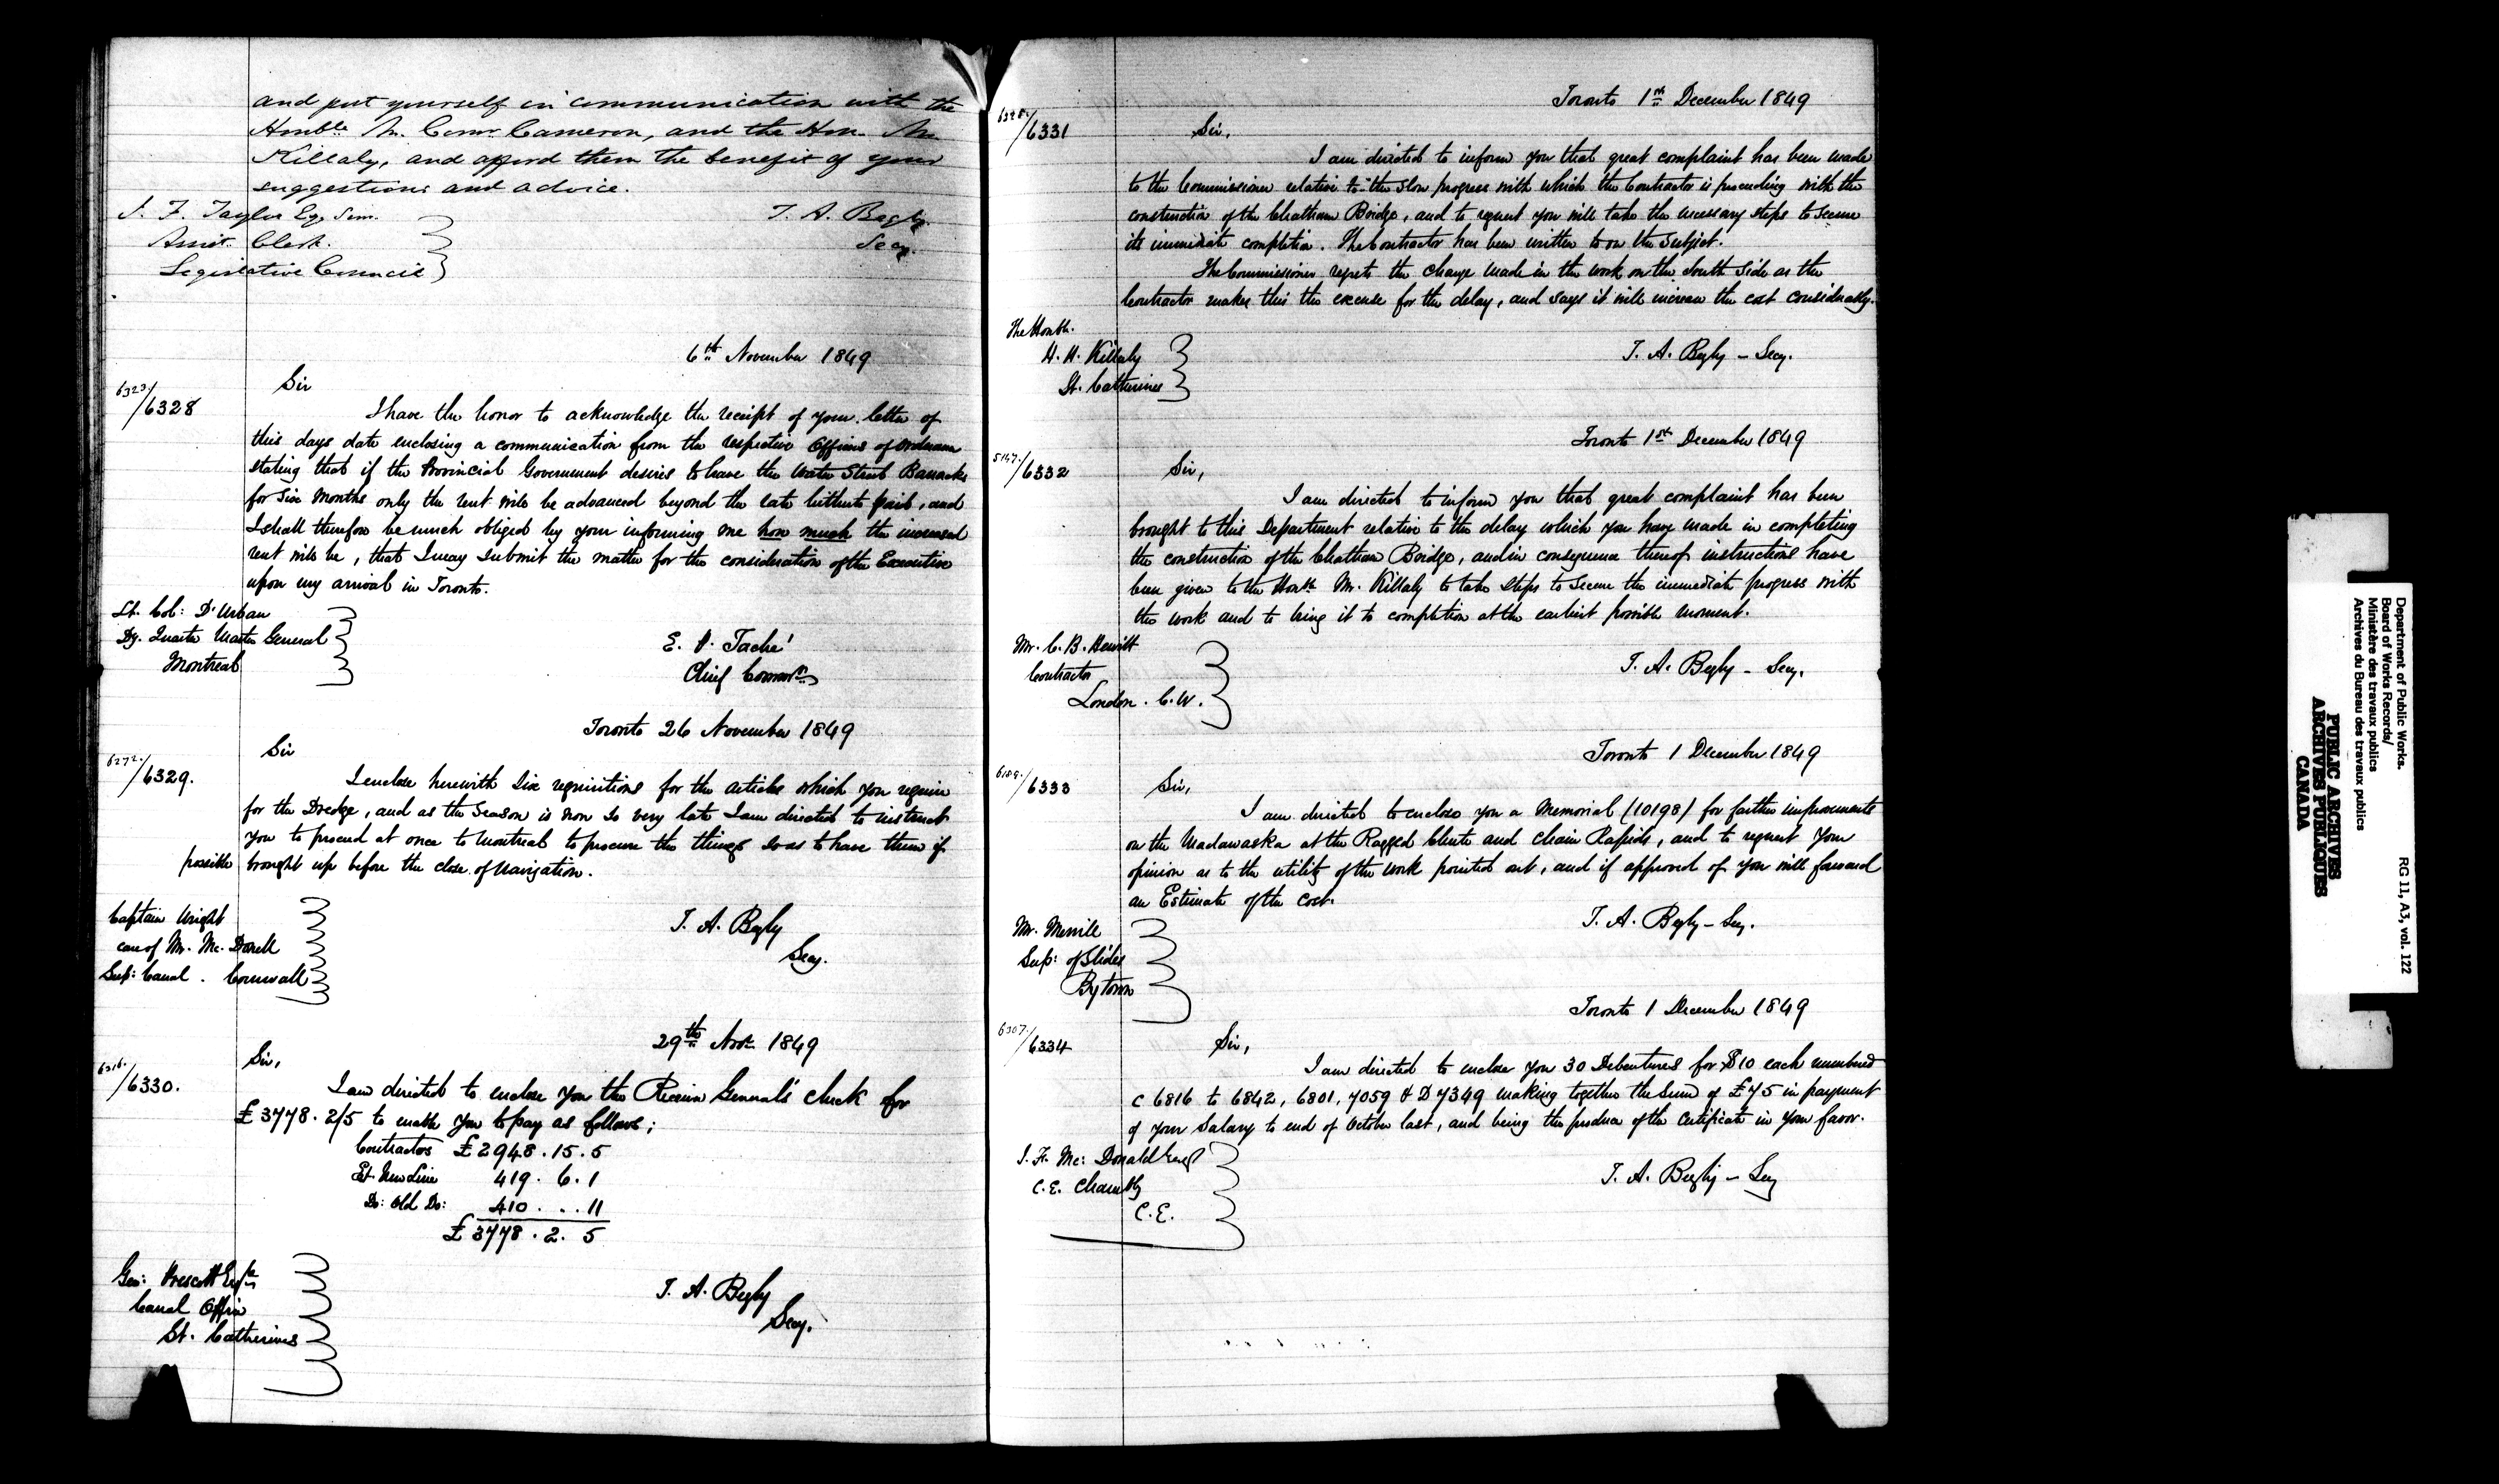 and put yourself in communication with the
Honble Mr. Comr. Cameron, and the Hon. Mr
Killaly, and afford them the benefit of your
suggestions and advice.
J. F. Taylor Esq. Senr.
Assist. Clerk.
Legislative Council
T. A. Begly.
Secy.
6th November 1849
6323/6328
Sir
I have the honor to acknowledge the receipt of your letter of
this days date enclosing a communication from the respective Officers of Ordnance
stating that if the Provincial Government desires to leave the Water Street Barracks
for Six Months only the rent will be advanced beyond the rate hitherto paid, and
I shall therefore be much obliged by your informing me how much the increased
rent will be, that I may submit the matter for the consideration of the Executive
upon my arrival in Toronto.
Lt. Col: D'Urban
Dy. Quarter Master General
Montreal
E. P. Taché
Chief Commr.
Toronto 26 November 1849
6272/6329.
Sir
I enclose herewith Six requisitions for the articles which you require
for the Dredge, and as the Season is now so very late I am directed to instruct
you to proceed at once to Montreal to procure the things so as to have them if
possible brought up before the close of navigation.
Captain Wright
care of Mr. Mc. Donell
Sup: Canal. Cornwall
T. A. Begly
Secy.
29th Novr 1849
6316/6330.
Sir,
I am directed to enclose you the Receiver General's check for
£3778. 2/5 to enable you to pay as follows;
Contractors £2948.15.5
Est. New Line 419. 6. 1
Do: Old Do: 410 . .. 11
£3778. 2. 5
Geo: Prescott Esqre
Canal Office
St. Catherines
T. A. Begly
Secy.
Toronto 1st December 1849
6328/6331
Sir,
I am directed to inform you that great complaint has been made
to the Commissioner relative to the slow progress with which the Contractor is proceeding with the
construction of the Chatham Bridge, and to request you will take the necessary steps to secure
its immediate completion. The Contractor has been written to on the subject.
The Commissioner regrets the change made in the work on the South Side as the
Contractor makes this the excuse for the delay, and says it will increase the cost considerably.
The Honble.
H. H. Killaly
St. Catherines
T. A. Begly - Secy.
Toronto 1st December 1849
5147/6332
Sir,
I am directed to inform you that great complaint has been
brought to this Department relative to the delay which you have made in completing
the construction of the Chatham Bridge, and in consequence thereof instructions have
been given to the Honble Mr. Killaly to take steps to secure the immediate progress with
the work and to bring it to completion at the earliest possible moment.
Mr. C. B. Hewitt
Contractor
London. C.W.
T. A. Begly - Secy.
Toronto 1 December 1849
6189/6333
Sir,
I am directed to enclose you a Memorial (10198) for farther improvements
on the Madawaska at the Ragged Chute and Chain Rapids, and to request your
opinion as to the utility of the work pointed out, and if approved of you will forward
an Estimate of the Cost.
Mr. Merrill
Sup: of Slides
Bytown
T. A. Begly - Secy.
Toronto 1 December 1849
6307/6334
Sir,
I am directed to enclose you 30 Debentures for $10 each numbered
C 6816 to 6842, 6801, 7059 & D 7349 making together the Sum of £75 in payment
of your Salary to end of October last, and being the produce of the Certificate in your favor.
J. F. Mc: Donald Esqr
C.E. Chambly
C.E.
T. A. Begly - Secy
Department of Public Works.
Board of Works Records/
Ministère des travaux publics
Archives du Bureau des travaux publics
RG 11, A3, vol. 122
PUBLIC ARCHIVES
ARCHIVES PUBLIQUES
CANADA